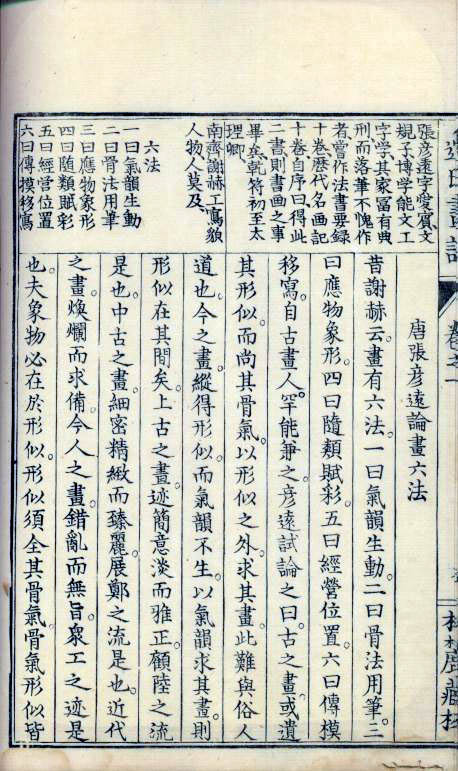 張彥遠字愛賓文
規子博学能文工
字学其家富有典
刑而落筆不愧作
者嘗作法書要録
十巻歷代名画記
十巻自序曰得此
二書則書画之事
畢矣乾符初至太
理卿
南齊謝赫工寫貌
人物人莫及
六法
一曰氣韻生動
二曰骨法用筆
三曰應物象形
四曰随類賦彩
五曰經營位置
六曰傳摸移寫
唐張彥遠論畫六法
昔謝赫云畫有六法一曰氣韻生動二曰骨法用筆三
曰應物象形四曰隨類賦彩五曰經營位置六曰傳模
移寫自古畫人罕能兼之彥遠試論之曰古之畫或遺
其形似而尚其骨氣以形似之外求其畫此難與俗人
道也今之畫縱得形似而氣韻不生以氣韻求其畫則
形似在其間矣上古之畫迹簡意淡而雅正顧陸之流
是也中古之畫細密精緻而臻麗展鄭之流是也近代
之畫煥爛而求備今人之畫錯亂而無旨衆工之迹是
也夫象物必在於形似形似須全其骨氣骨氣形似皆